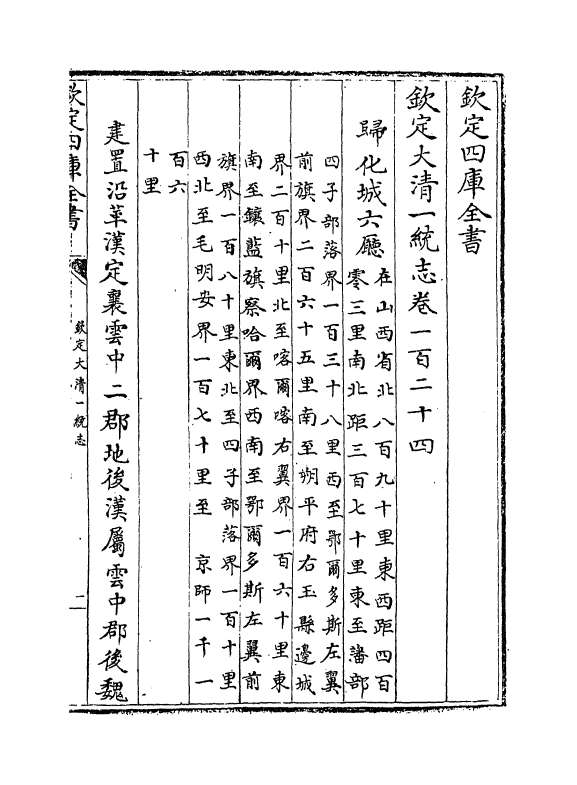 欽定四庫全書
欽定大清一統志卷一百二十四
歸化城六廳在山西省北八百九十里東西距四百
零三里南北距三百七十里東至藩部
四子部落界一百三十八里西至鄂爾多斯左翼
前旗界二百六十五里南至朔平府右玉縣邊城
界二百十里北至喀爾喀右翼界一百六十里東
南至鑲藍旗察哈爾界西南至鄂爾多斯左翼前
旗界一百八十里東北至四子部落界一百十里
西北至毛明安界一百七十里至 京師一千一
百六
十里
建置沿革漢定襄雲中二郡地後漢屬雲中郡後魏
欽定四庫全書
欽定大清一統志